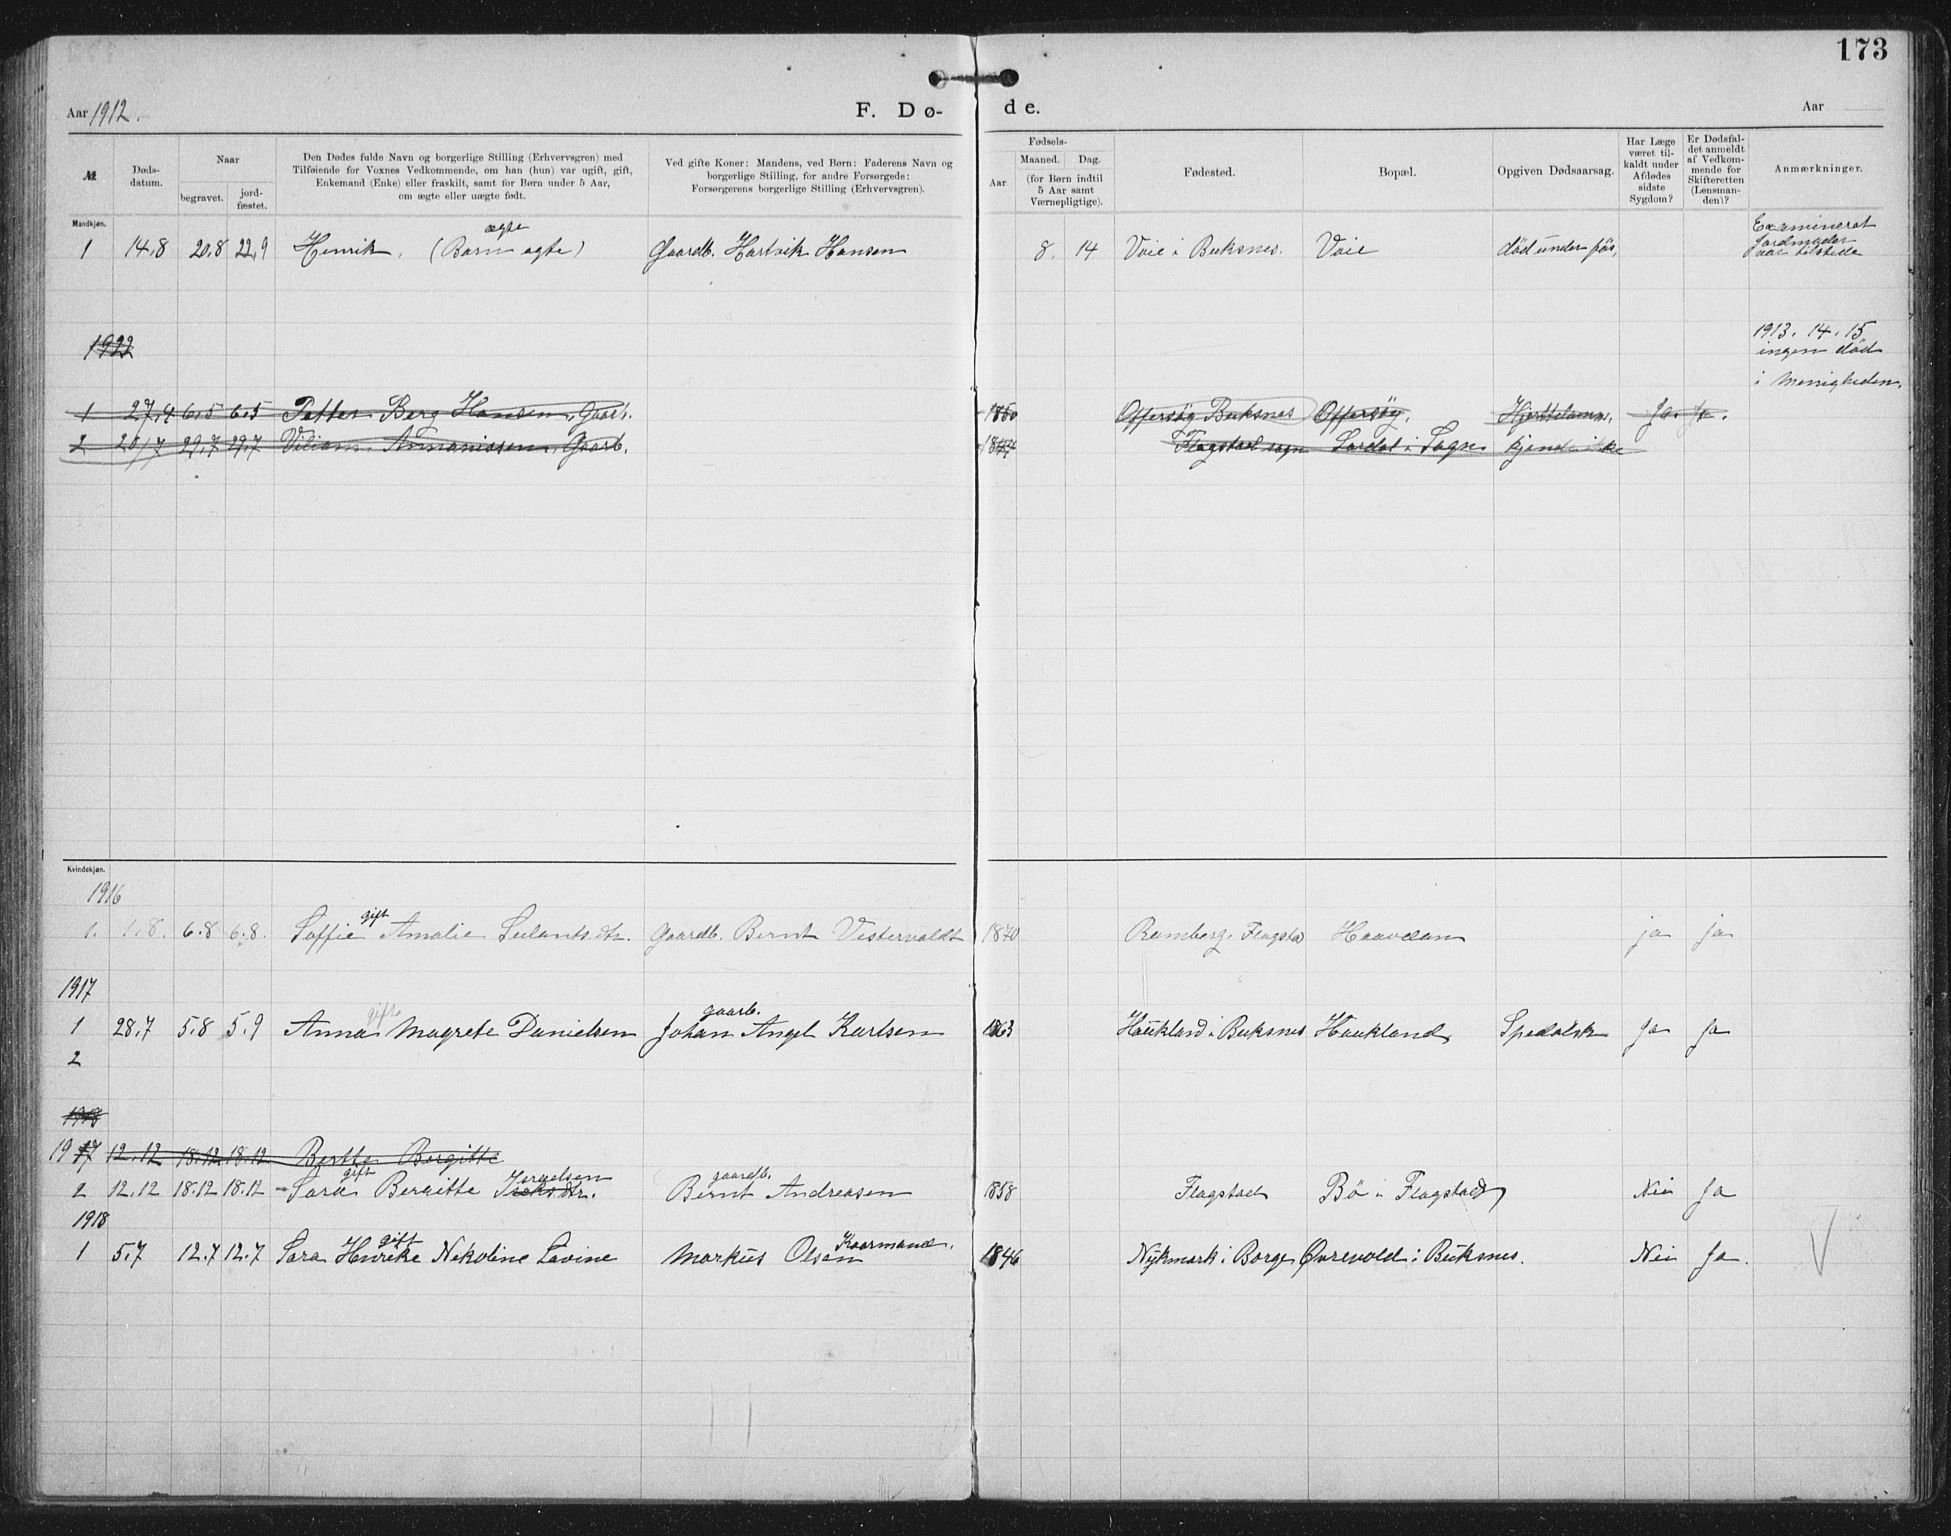 173
Aar 1912.
F. Dø-
de.
Aar
№
Døds-
datum.
Naar
begravet.
jord-
fæstet.
Den Dødes fulde Navn og borgerlige Stilling (Erhvervsgren) med
Tilføiende for Voxnes Vedkommende, om han (hun) var ugift, gift,
Enkemand (Enke) eller fraskilt, samt for Børn under 5 Aar,
om ægte eller uægte født.
Ved gifte Koner: Mandens, ved Børn: Faderens Navn og
borgerlige Stilling, for andre Forsørgede:
Forsørgerens borgerlige Stilling (Erhvervsgren).
Fødsels-
Aar
Maaned.
Dag.
(for Børn indtil
5 Aar samt
Værnepligtige).
Fødested.
Bopæl.
Opgiven Dødsaarsag.
Har Læge
været til-
kaldt under
Afdødes
sidste
Sygdom?
Er Dødsfal-
det anmeldt
af Vedkom-
mende for
Skifteretten
(Lensman-
den)?
Anmærkninger.
Mandkjøn.
ægte
1 14.8 20.8 22.9 Henrik. (Barn ægte) Gaardb. Hartvik Hansen 8. 14 Voie i Buksnes. Voie död under fös,
Examineret
Jordmoder
var tilstede
1922
1913. 14. 15
ingen död
i Menigheden.
1 27.4 6.5 6.5 Petter Berg Hansen, Gaarb. 1860 Offersøy Buksnes Offersøy. Ja. Ja.
2 20/7 29.7 29.7 Viliam Annaniassen, Gaarb. Flagstad sogn kjend ikke
Kvindekjøn.
1916
gift
1. 1.8. 6.8 6.8. Soffie Amalie gaardb. Bernt Vestervoldt 1870 Ramberg. Flagsta ja ja
1917
gift gaarb.
1 28.7 5.8 5.9 Anna Magrete Danielsen Johan Angel Karlsen 1863 Haukland i Buksnes Haukland Spedalsk Ja Ja
2
1918
1917 12.12 18.12 18.12 Bertte Bergitte
gift gaardb.
2 12.12 18.12 18.12 - Sara Bergitte Bernt Andreasen 1858 Flagstad Bö i Flagstad Nei Ja
1918
gift
1 5.7 12.7 12.7 Sara Hnreke Nekoline Lovine Markus Olsen Kaarmand. 1846 Nykmark i Borge Øvrevold i Buksnes. Nei Ja.